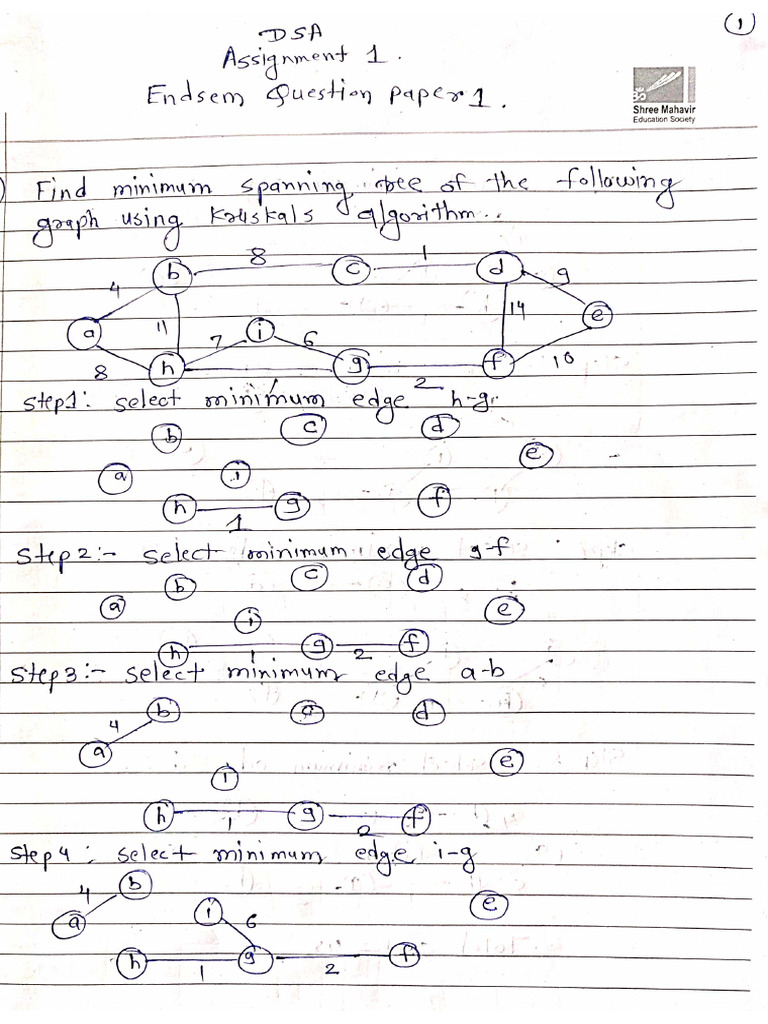 1
DSA
Assignment 1.
Endsem Question paper 1.
Shree Mahavir
Education Society
) Find minimum spanning tree of the following
graph using Kruskals algorithm..
b 8 c 1 d 9
4 11 14 e
a 7 i 6
8 h g f 10
1 2
Step1: select minimum edge h-g.
b c d
a i e
h g f
1
Step2:- select minimum edge g-f
b c d
a i e
h 1 g 2 f
Step3:- select minimum edge a-b
4 b c d
a e
i
h 1 g 2 f
Step4: select minimum edge i-g
4 b e
a i 6
h 1 g 2 f